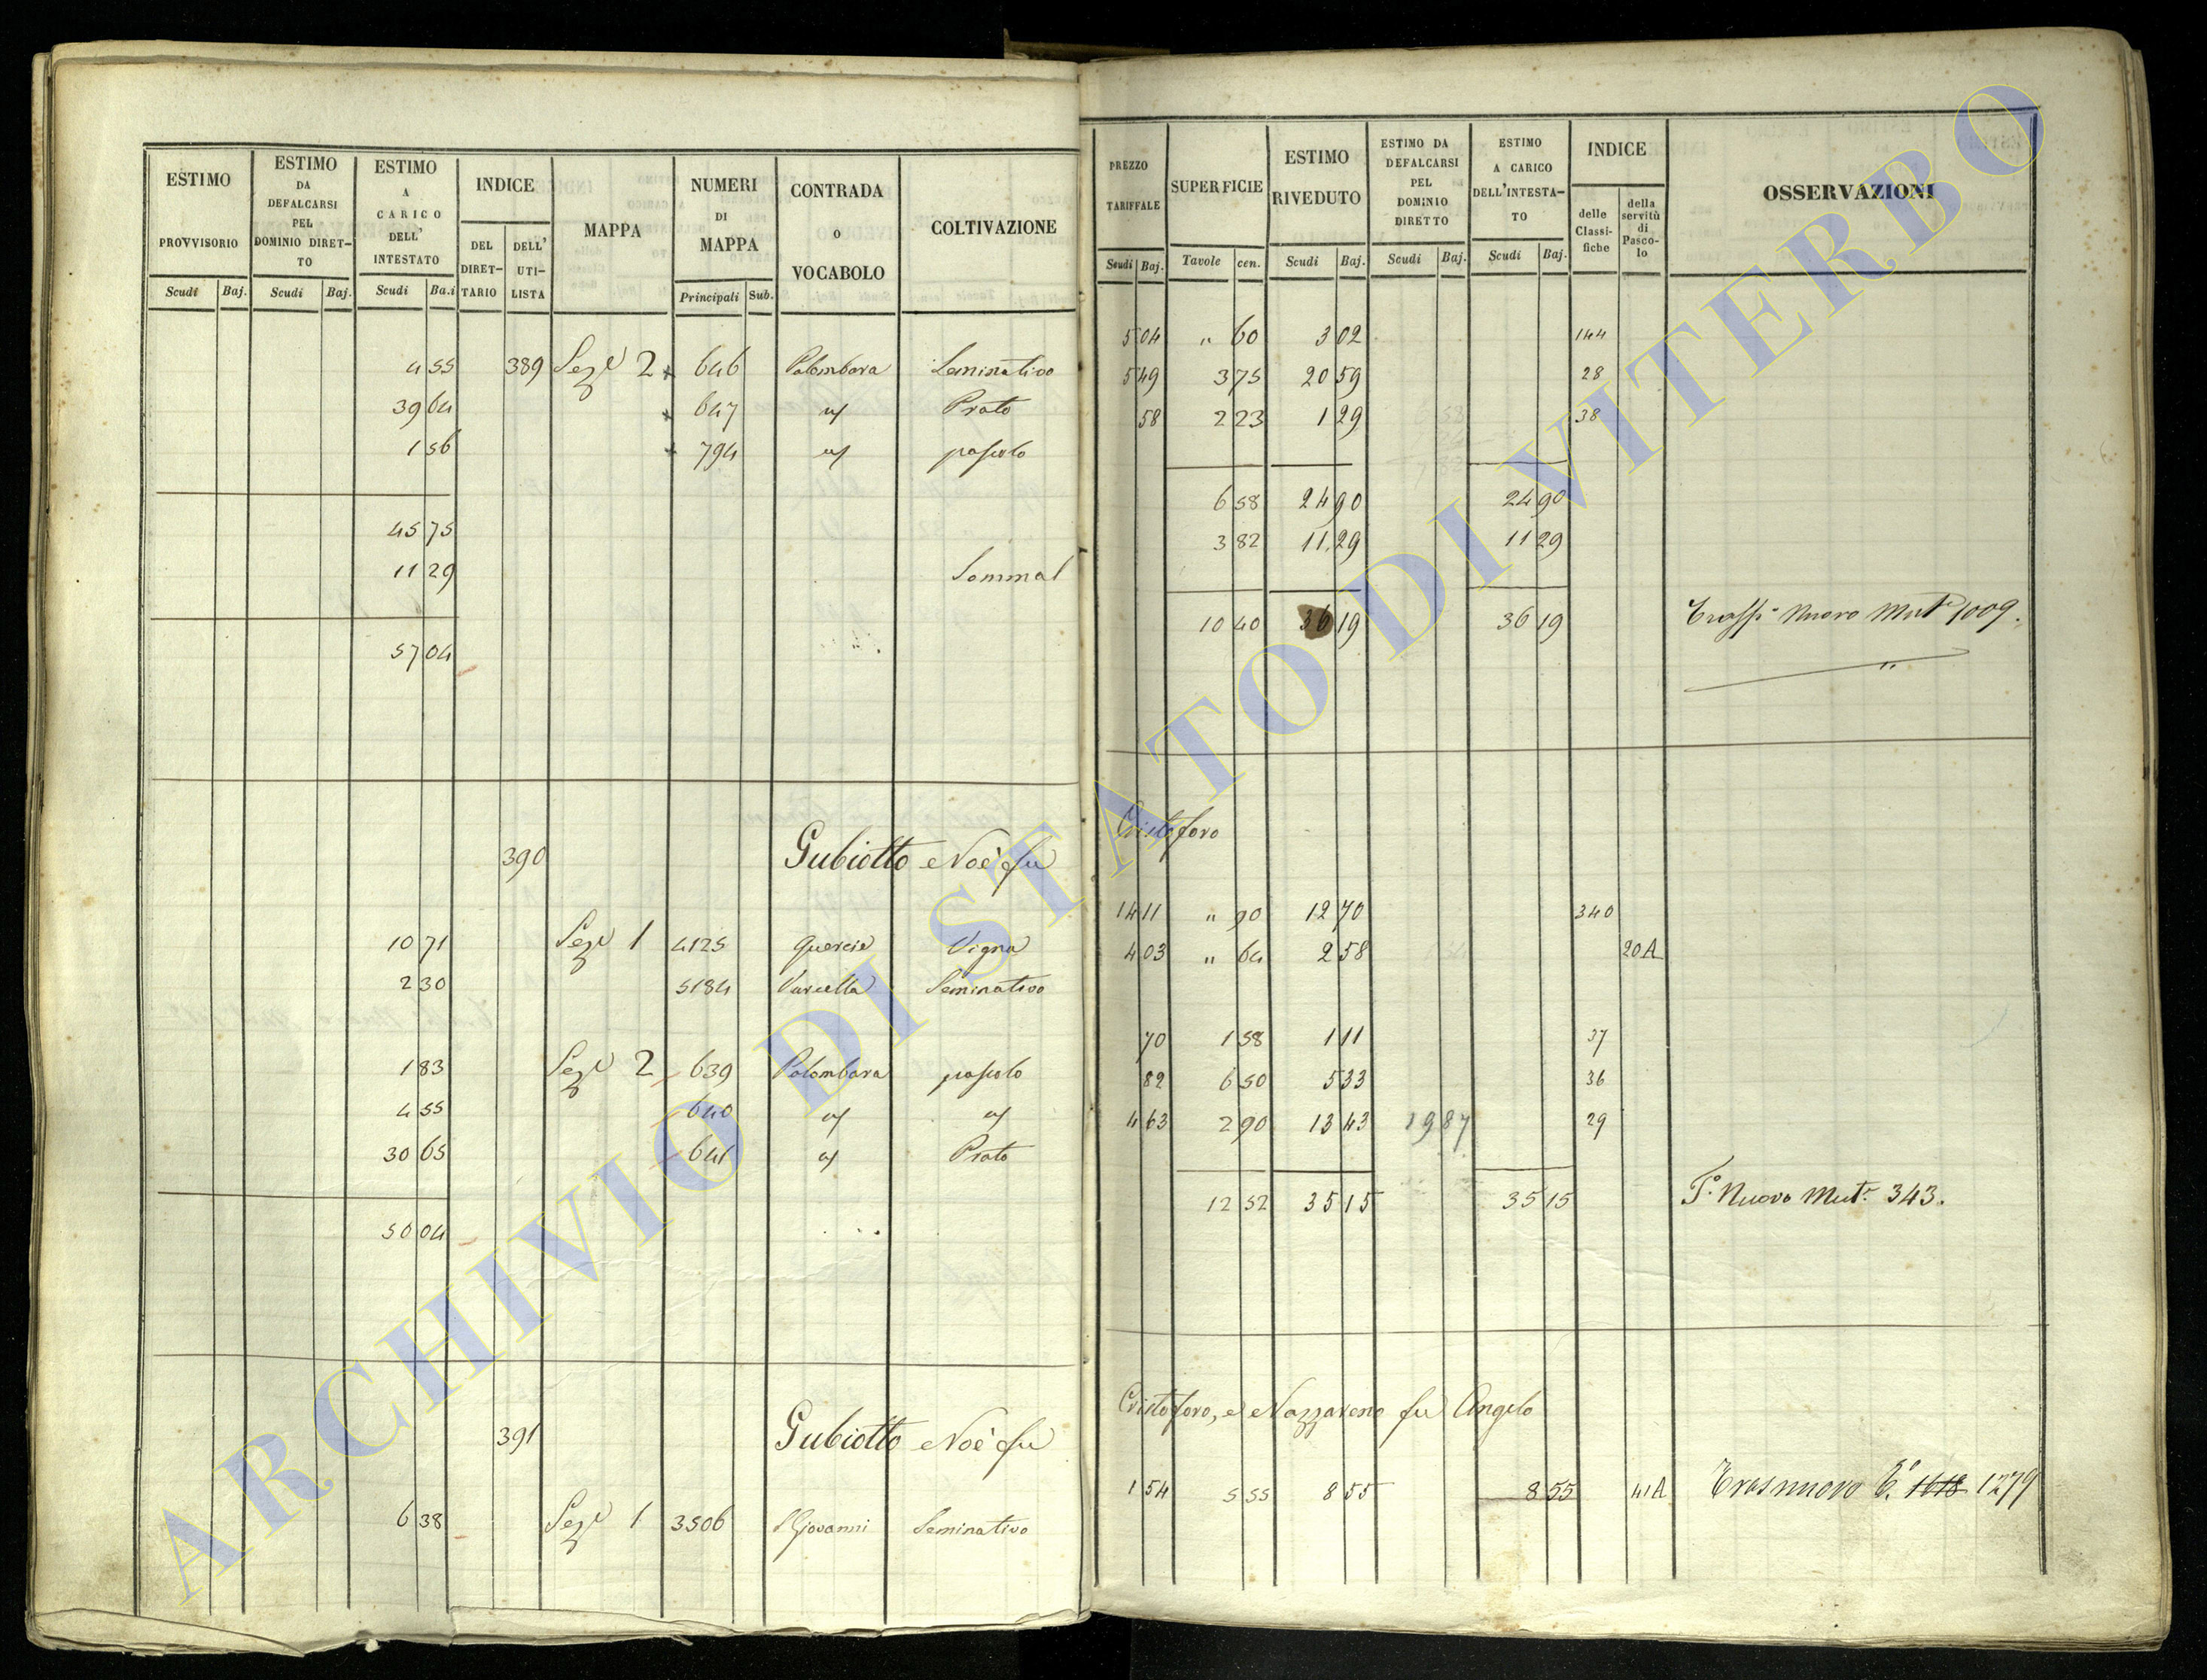 ESTIMO PROVVISORIO | ESTIMO DA DEFALCARSI PEL DOMINIO DIRET-TO | ESTIMO A CARICO DELL' INTESTATO | INDICE | MAPPA | NUMERI DI MAPPA | CONTRADA O VOCABOLO | COLTIVAZIONE
DEL DIRET-TARIO | DELL' UTI-LISTA
Scudi | Baj. | Scudi | Baj. | Scudi | Ba.i | Principali | Sub.
4 55 389 Sez.e 2 646 Palombara Seminativo
39 64 647 Prato
1 56 794 pascolo
45 75
11 29 Sommal
57 04
390 Gubiotto Noè fu
10 71 Sez.e 1 4125 Quercie Vigna
2 30 5184 Varcella Seminativo
1 83 Sez.e 2 639 Palombara pascolo
4 55 640
30 65 641 Prato
50 04
391 Gubiotto Noè fu
6 38 Sez.e 1 3506 S Giovanni Seminativo
PREZZO TARIFFALE | SUPERFICIE | ESTIMO RIVEDUTO | ESTIMO DA DEFALCARSI PEL DOMINIO DIRETTO | ESTIMO A CARICO DELL'INTESTA-TO | INDICE | OSSERVAZIONI
delle Classi-fiche | della servitù di Pasco-lo
Scudi | Baj. | Tavole | cen. | Scudi | Baj. | Scudi | Baj. | Scudi | Baj.
5 04 " 60 3 02 144
5 49 3 75 20 59 28
58 2 23 1 29 38
6 58 24 90 24 90
3 82 11.29 11 29
10 40 36 19 36 19 Nuovo Mut.e 1009.
"
Cristoforo
14 11 " 90 12 70 340
4 03 " 64 2 58 20A
70 1 58 1 11 37
82 6 50 5 33 36
4 63 2 90 13 43 19 87 29
12 52 35 15 35 15 T.o Nuovo Mut.e 343.
Cristoforo, e Nazzareno fu Angelo
1 54 5 55 8 55 8 55 41A Trasnuovo T.o 1618 1279
ARCHIVIO DI STATO DI VITERBO